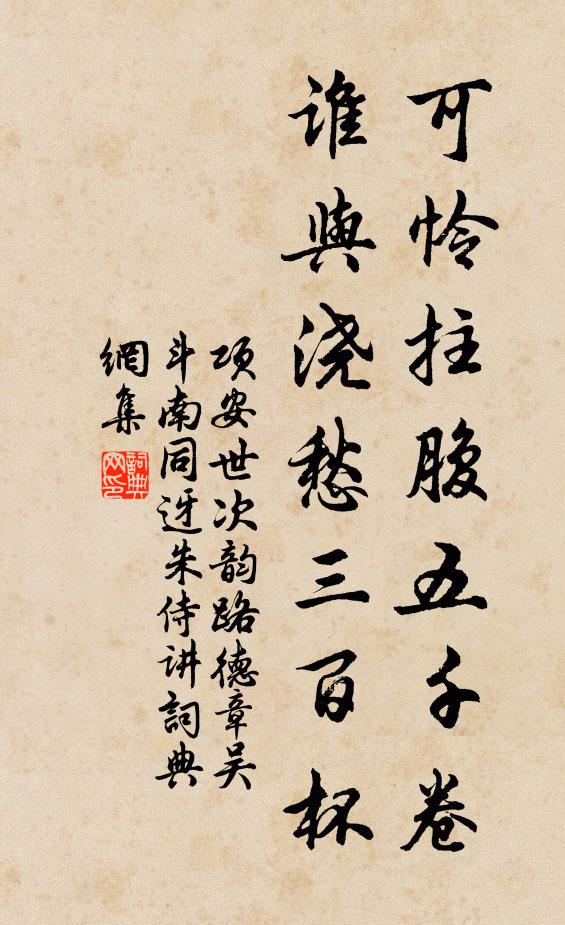 可怜拄腹五千卷
谁与浇愁三百杯
项安世次韵路德章吴
斗南同迓朱侍讲詞典
網集
詞典網印